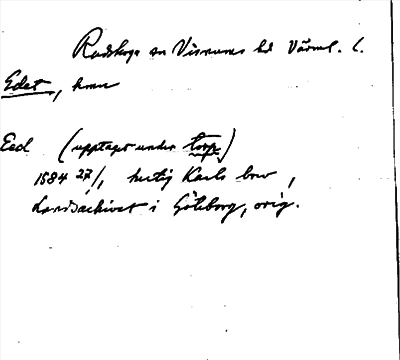 Rudskoga sn Visnums hd Värml. l.
Edet, hmn
Eed (upptaget under torp)
1584 27/1, hertig Karls brev,
Landsarkivet i Göteborg, orig.